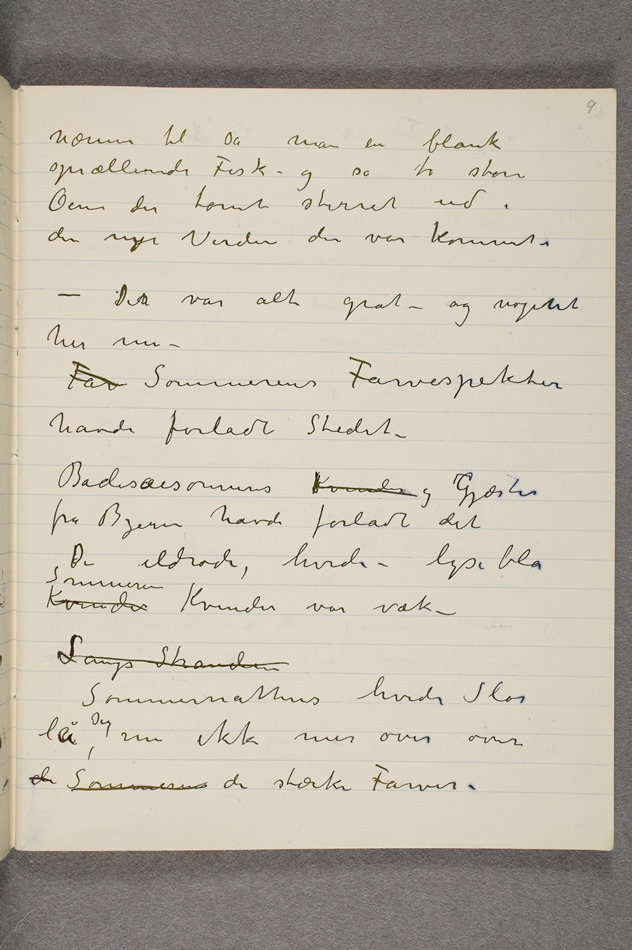 9
nærmer til så man en blank
sprællende Fisk – og så to store
Øene der tomt stirret ud i
den nye Verden der var kommet.
– Det var alt gråt – og nøgent
her nu –
Far Sommerens Farvespekter
havde forladt Stedet –
Badesæsonnens Kvinder og Gjæster
fra Byerne havde forladt det
De ildrøde, hvide – lyse blå
Sommeren
Kvinder Kvinder var væk –
Langs Stranden
Sommernattens hvide Slør
lå nu ikke mer over over
de Sommerens de stærke Farver.